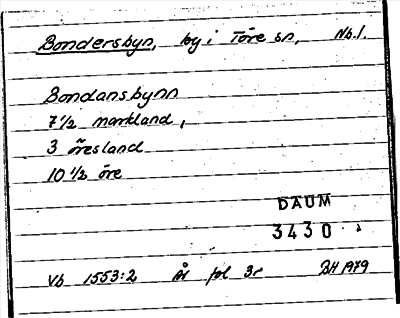 Bondersbyn, by i Töre sn, Nb.l.
Bondansbynn
7 1/2 markland,
3 öresland
10 1/2 öre
DAUM
3430
Vb 1553:2 ÅL fol 3r BH 1979